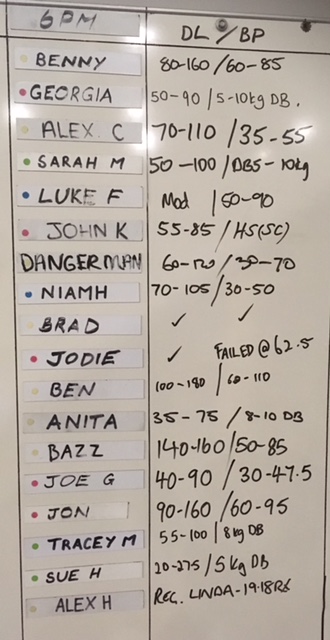 6PM DL/BP
BENNY 80-160/60-85
GEORGIA 50-90/5-10kg DB.
ALEX C 70-110/35-55
SARAH M 50-100/DB5-10kg
LUKE F Mod |50-90
JOHN K 55-85/HS(SC)
DANGERMAN 60-120/30-70
NIAMH 70-105/30-50
BRAD ✓ ✓
JODIE ✓ FAILED@62.5
BEN 100-180/60-110
ANITA 35-75/8-10 DB
BAZZ 140-160/50-85
JOE G 40-90/30-47.5
JON 90-160/60-95
TRACEY M 55-100|8kg DB
SUE H 20-275/5kg DB
ALEX H LINDA-19:18